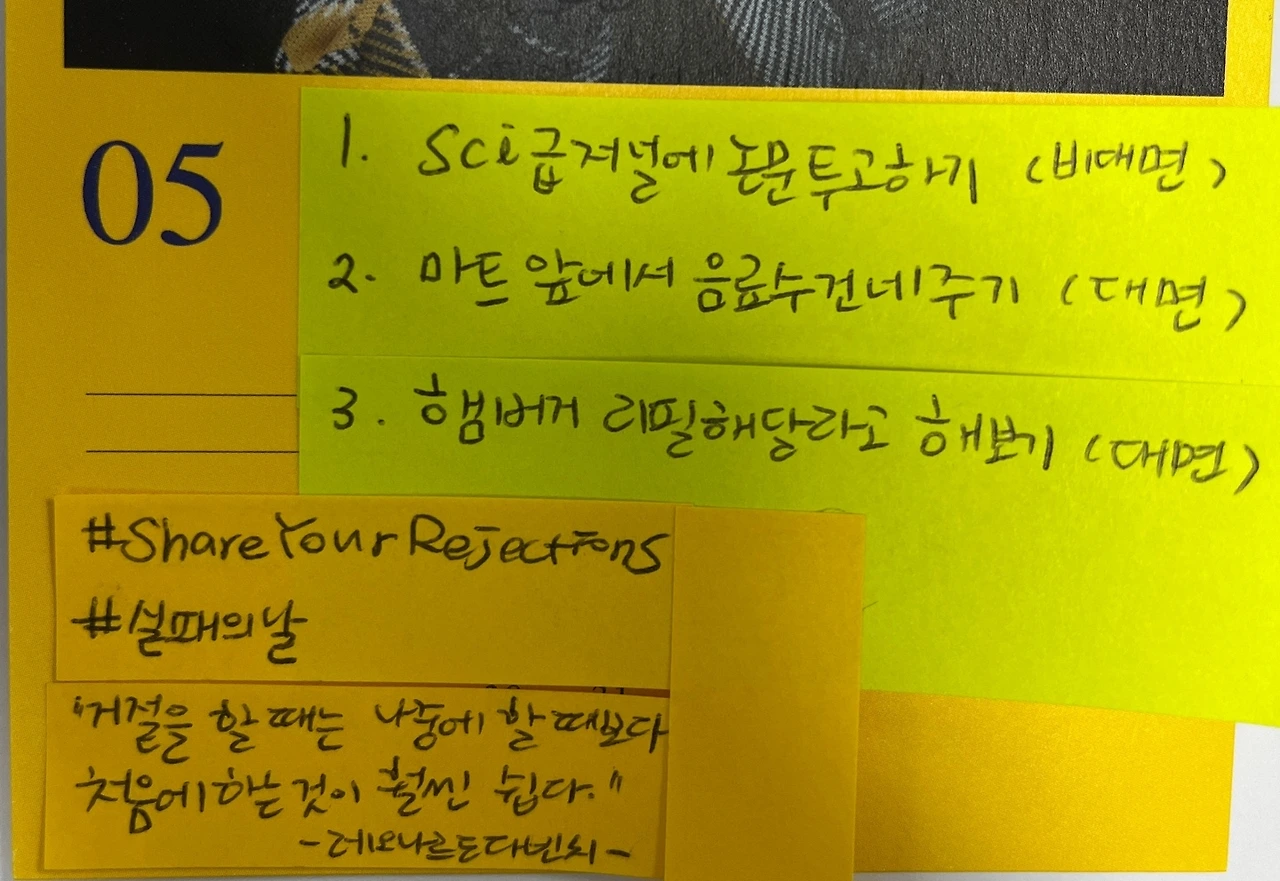 05
1. Sci급저널에 논문투고하기 (비대면)
2. 마트 앞에서 음료수건네주기 (대면)
3. 햄버거 리필해달라고 해보기 (대면)
#ShareYourRejections
#실패의날
"거절을 할 때는 나중에 할 때보다
처음에하는것이 훨씬 쉽다."
-레오나르도다빈치-